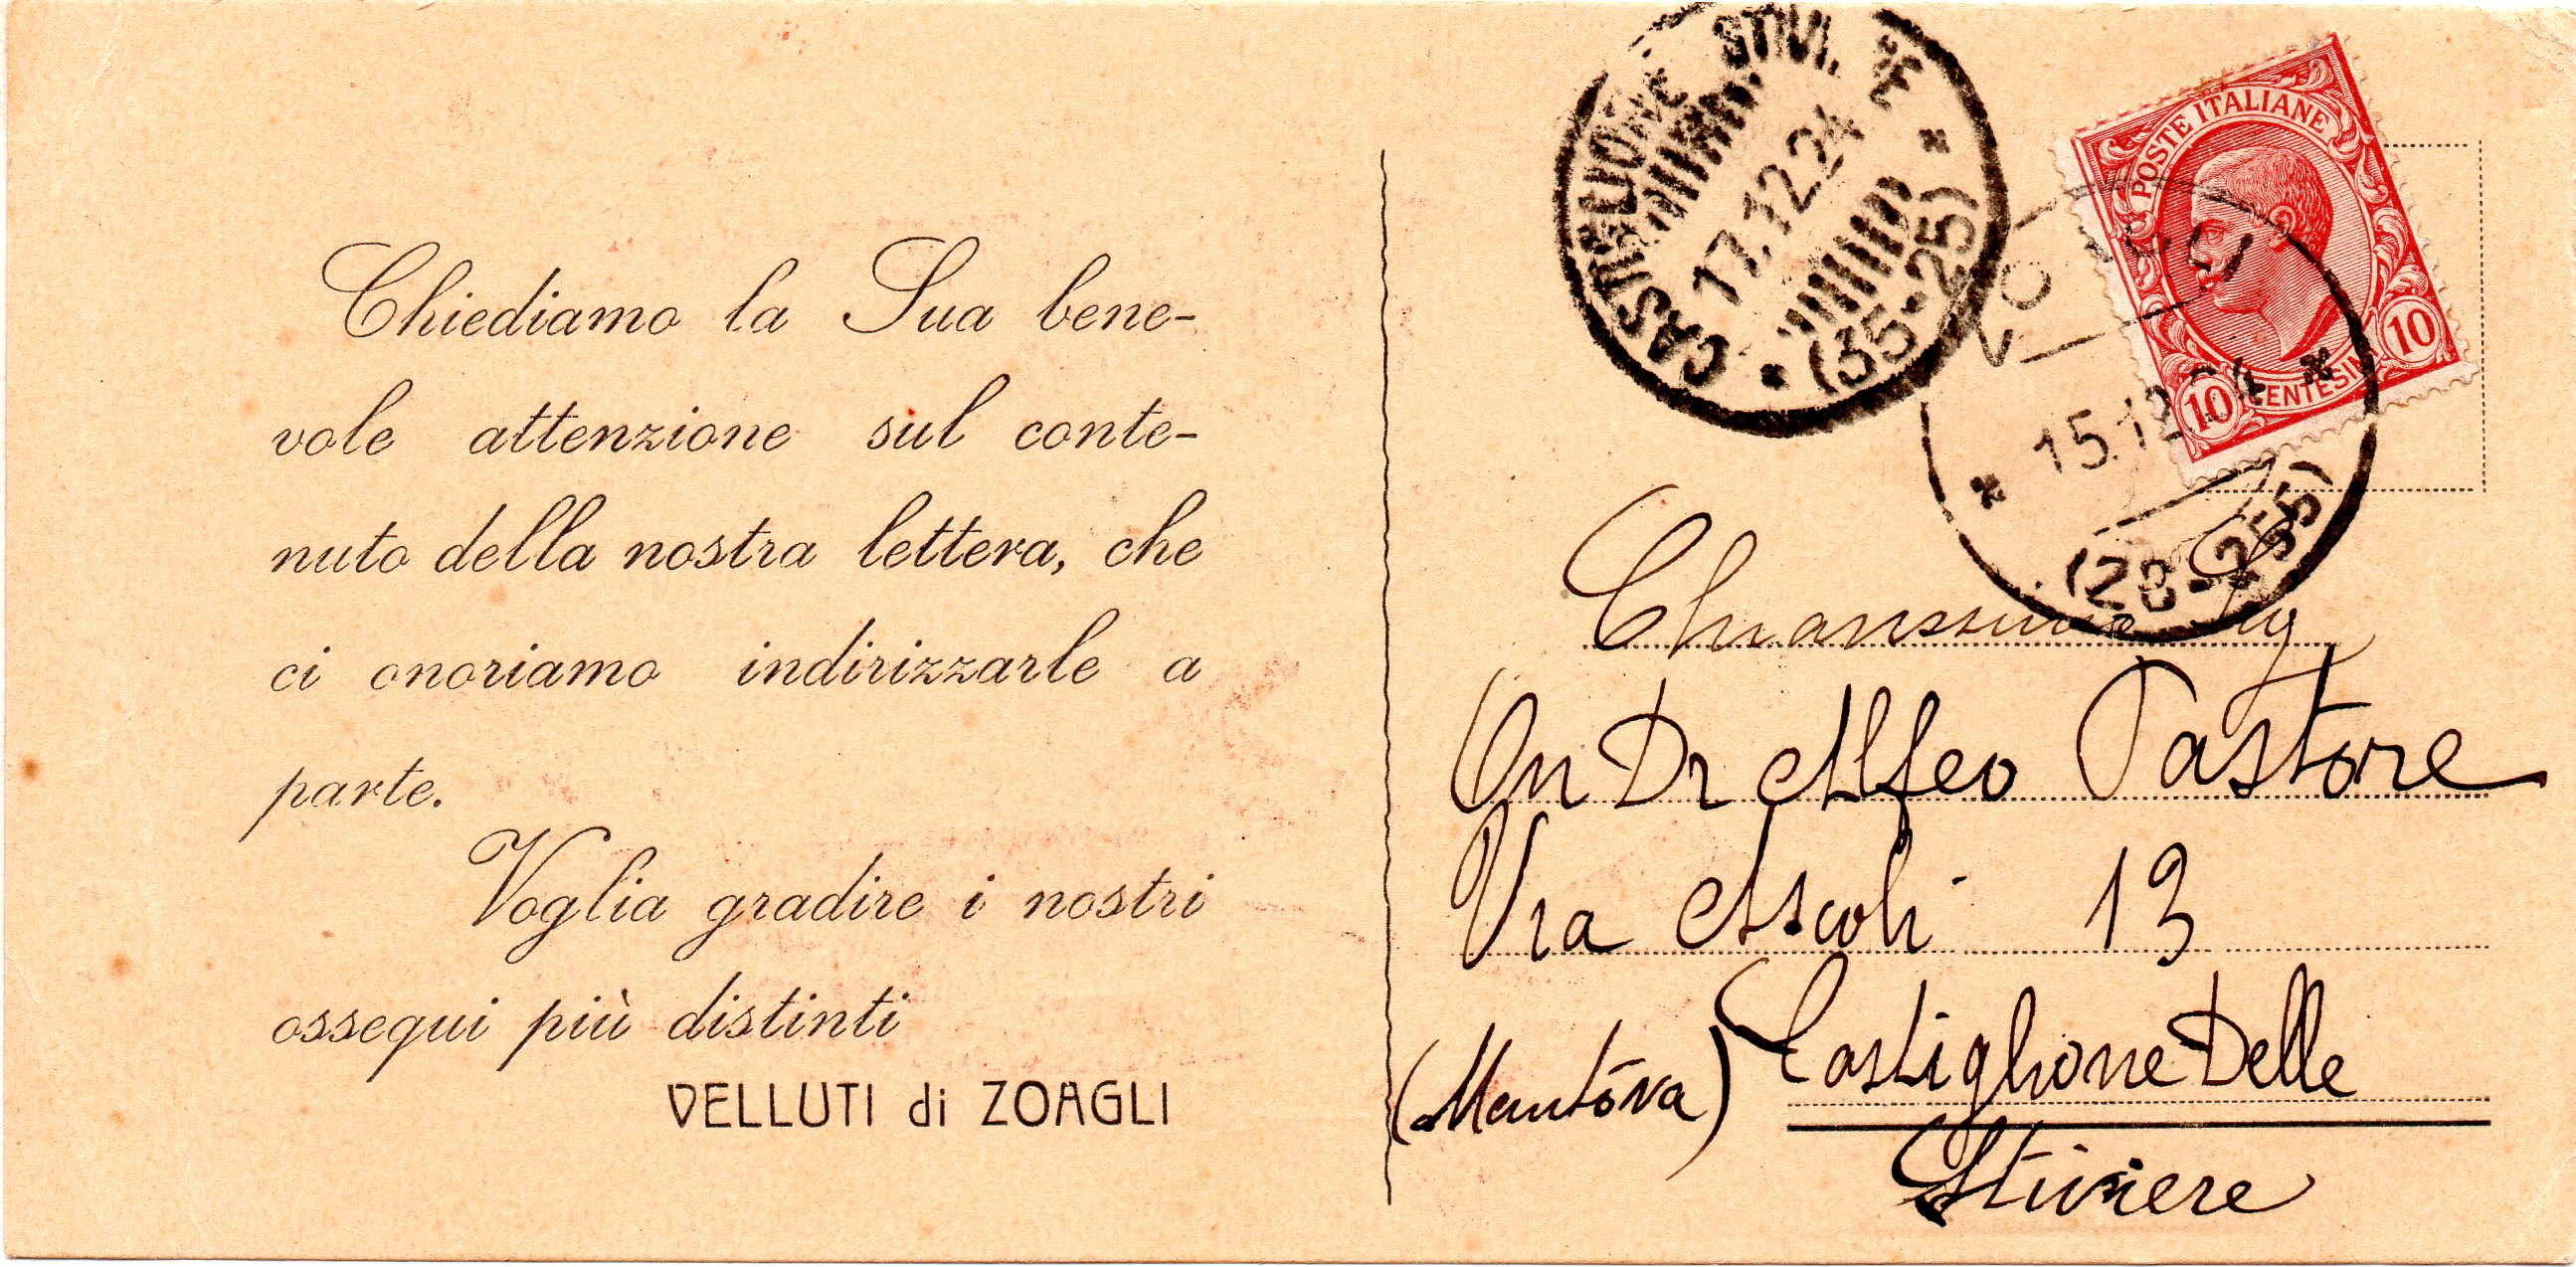 Chiediamo la Sua bene-
vole attenzione sul conte-
nuto della nostra lettera, che
ci onoriamo indirizzarle a
parte.
Voglia gradire i nostri
ossequi più distinti
VELLUTI di ZOAGLI
CASTIGLIONE STIV.
17.12.24
(35-25)
POSTE ITALIANE
10 CENTESIMI 10
ZOAGLI
15.12.24
(28-255)
Chiarissimo Sig
On Dr Alfeo Pastore
Via Ascoli 13
Castiglione Delle
(Mantova)
Stiviere